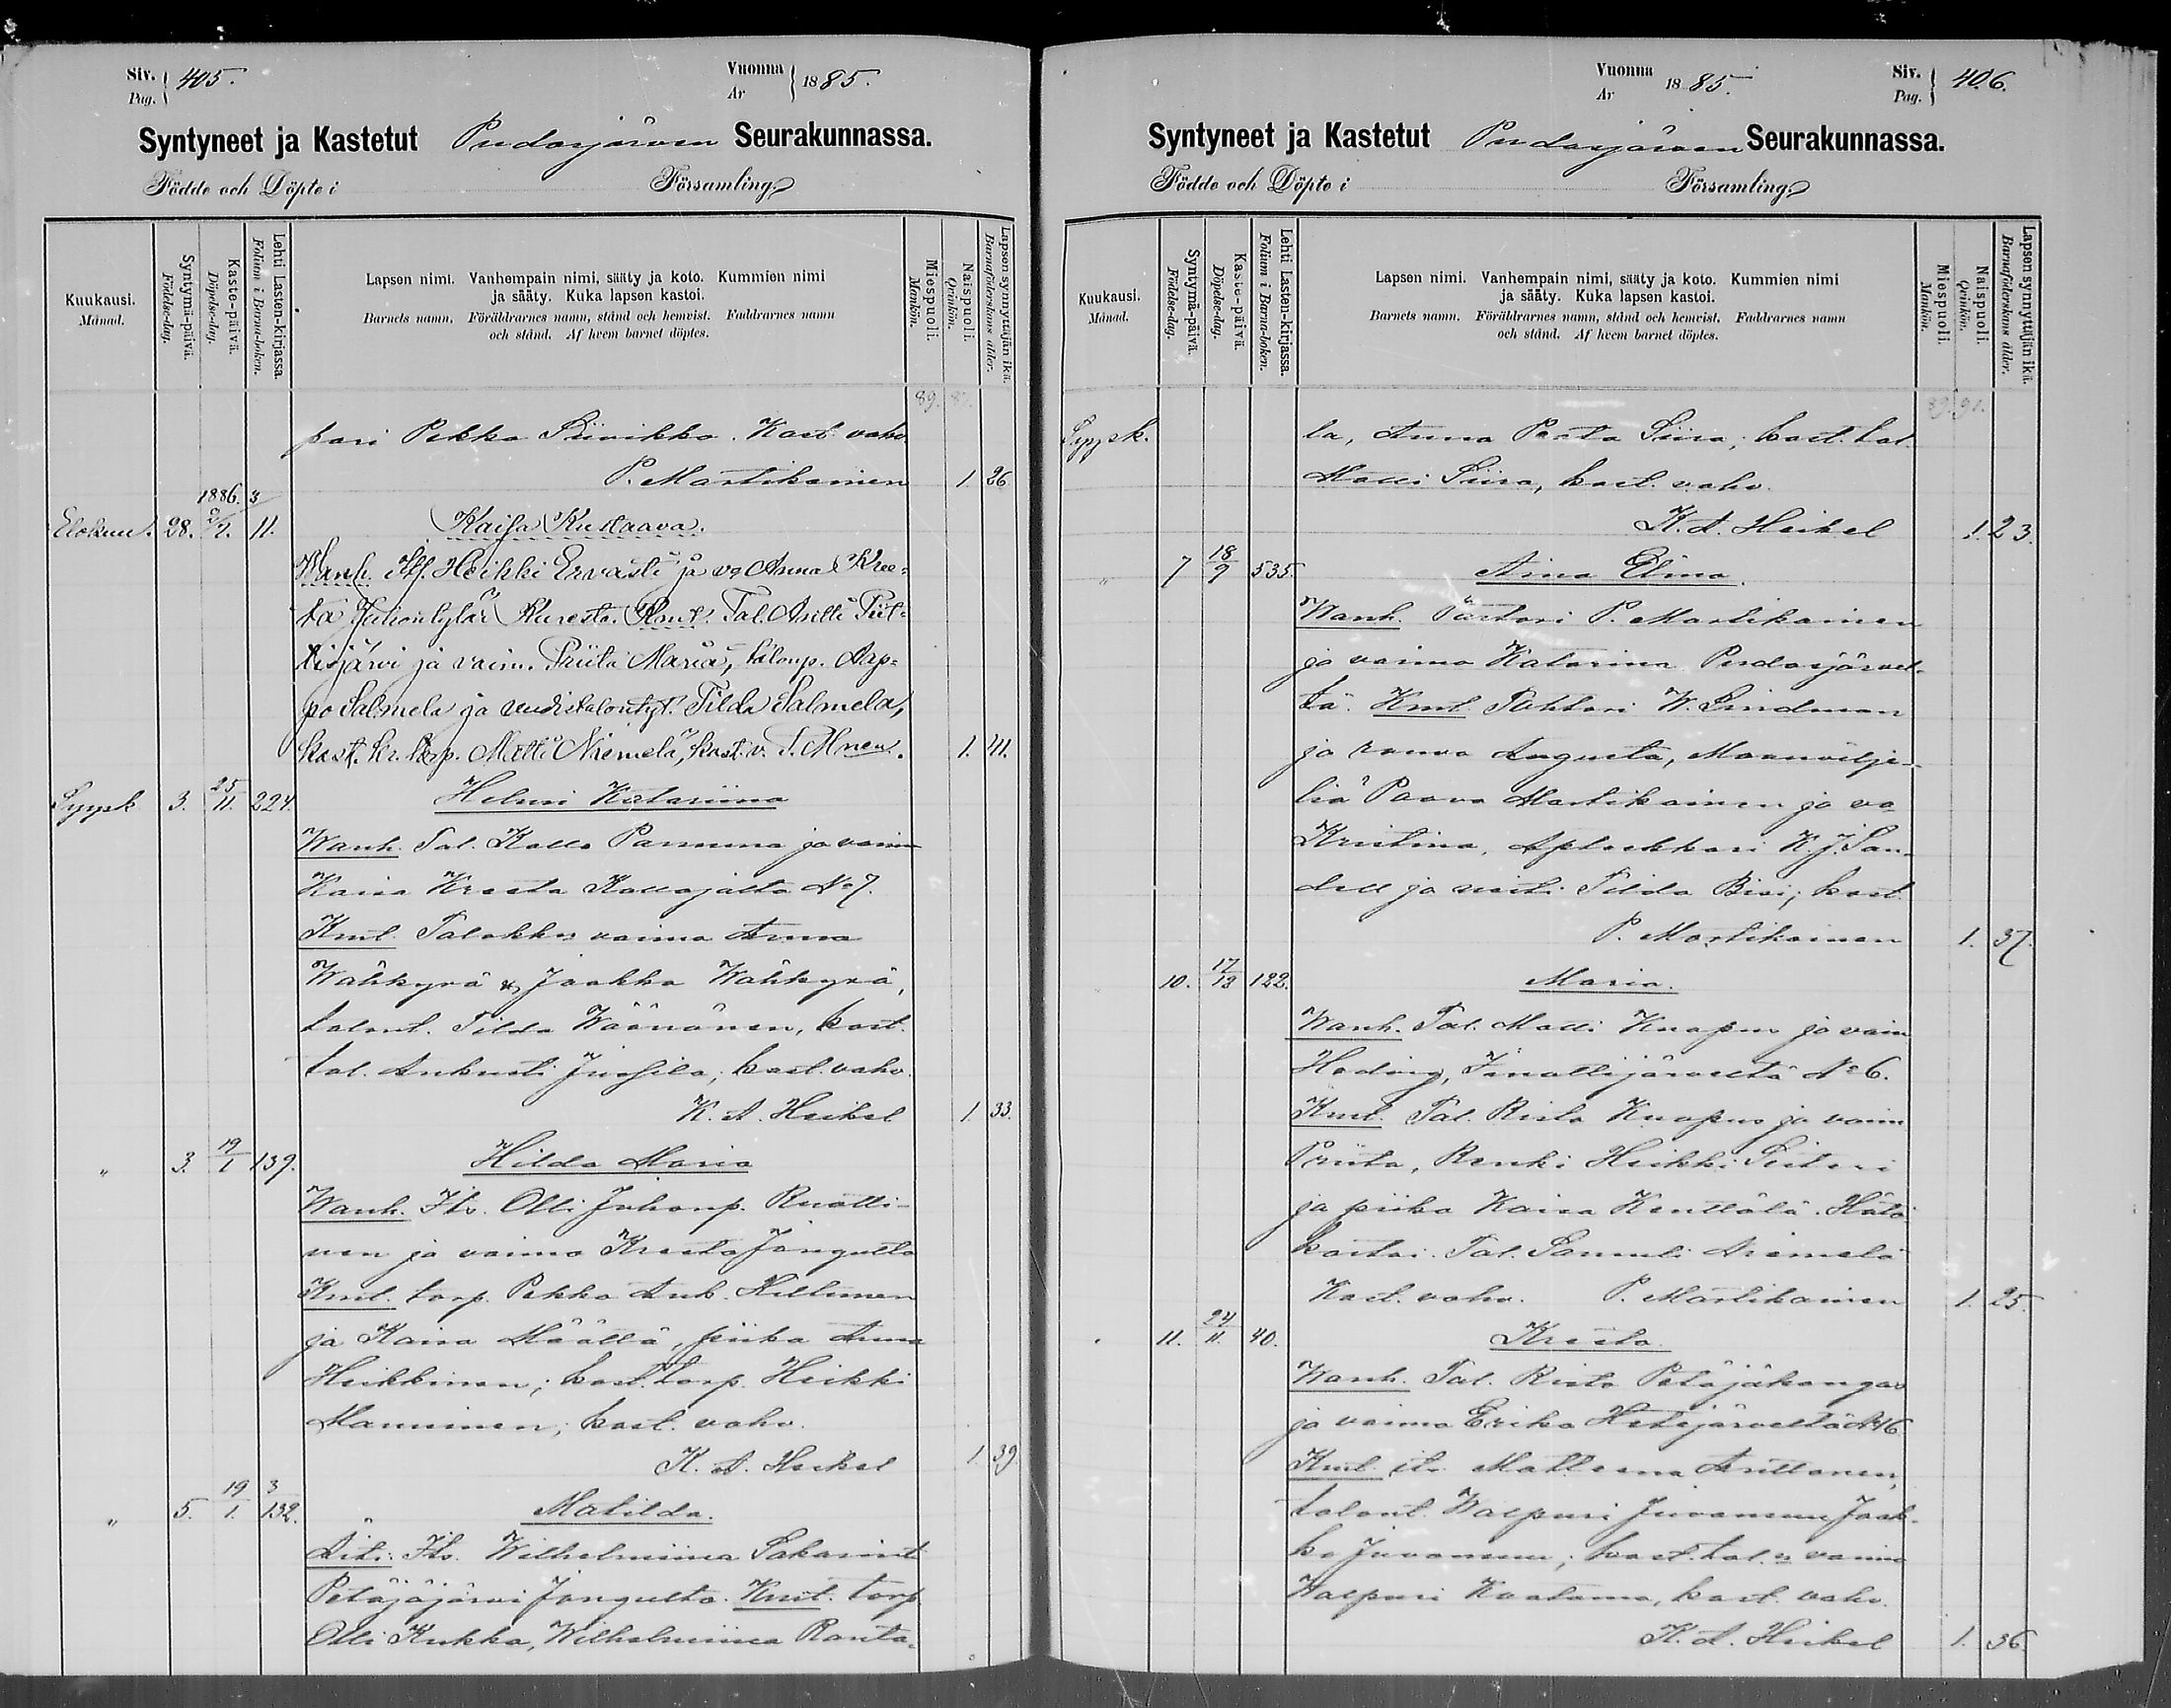 Siv. Pag. 405.
Vuonna Ar 1885.
Syntyneet ja Kastetut Pudasjärven Seurakunnassa.
Födde och Döpte i Församling
Kuukausi. Månad.
Syntymä-päivä. Födelse-dag.
Kaste-päivä. Döpelse-dag.
Lehti Lasten-kirjassa. Folium i Barna-boken.
Lapsen nimi. Vanhempain nimi, sääty ja koto. Kummien nimi
ja sääty. Kuka lapsen kastoi.
Barnets namn. Föräldrarnes namn, stånd och hemvist. Faddrarnes namn
och stånd. Af hvem barnet döptes.
Miespuoli. Mankön.
Naispuoli. Qvinkön.
Lapsen synnyttäjän ikä. Barnaföderskans ålder.
89.
pari Pekka Piivikko. Kast. vahv.
P. Martikainen 1. 26
1886. 3
Elokuu. 28. 2/2. 11. Kaisa Kustaava.
Wanh. Itl. Heikki Ervasti ja vo Anna Kree-
ta Juhontytär Kuresta. Kmt. Tal. Antti Piit-
tisjärvi ja vaim. Priita Maria, talonp. Aap-
po Salmela ja uudistalontyt. Tilda Salmela,
kast. kr. torp. Matti Niemelä, kast. v. P. Mnen. 1. 41.
Syysk 3. 25/11. 224. Helmi Katariina
Wanh. Tal. Kalle Pannuna ja vaim
Kaisa Kreeta Kollajalta No 7.
Kmt. Talokkas vaimo Anna
Wähkyrä & Jaakko Wähkyrä,
talont. Tilda Väänänen, kast.
tal. Aukusti Jussila; kast. vahv.
K. A. Heikel 1. 33.
" 3. 19/1 139. Hilda Maria
Wanh. Its. Olli Juhonp. Ruotti-
nen ja vaimo Kreeta Jongulta
Kmt. torp. Pekka Ant. Hiltunen
ja Kaisa Määttä, piika Anna
Heikkinen; kast. torp. Heikki
Manninen; kast. vahv.
K. A. Heikel 1. 39
" 5. 19/1. 3/132. Matilda.
Äiti: Its. Wilhelmiina Sakarint
Petäjäjärvi Jongulta. Kmt. torp
Olli Kukka, Wilhelmiina Ranta-
Vuonna Ar 1885.
Siv. Pag. 406.
Syntyneet ja Kastetut Pudasjärven Seurakunnassa.
Födde och Döpte i Församling
Kuukausi. Månad.
Syntymä-päivä. Födelse-dag.
Kaste-päivä. Döpelse-dag.
Lehti Lasten-kirjassa. Folium i Barna-boken.
Lapsen nimi. Vanhempain nimi, sääty ja koto. Kummien nimi
ja sääty. Kuka lapsen kastoi.
Barnets namn. Föräldrarnes namn, stånd och hemvist. Faddrarnes namn
och stånd. Af hvem barnet döptes.
Miespuoli. Mankön.
Naispuoli. Qvinkön.
Lapsen synnyttäjän ikä. Barnaföderskans ålder.
89. 91.
Syysk. la, Anna Siira; kast. tal.
Matti Siira, kast. vahv.
K. A. Heikel 1. 23.
" 7 18/9 535. Aina Elina.
Wanh. Pastori P. Martikainen
ja vaimo Katarina Pudasjärvel-
tä. Kmt. Tohtori W. Lindman
ja rouva Augusta, Maanvilje-
liä Paavo Martikainen ja vo
Kristina, Apteekkari K. J. San-
dell ja neiti Tilda Bisi; kast.
P. Martikainen 1. 37.
10. 17/12 122. Maria.
Wanh. Tal. Matti Kuopus ja vaim
Hedvig, Iinattijärveltä No 6.
Kmt. Tal. Risto Kuopus ja vaim
Priita, Renki Heikki
ja piika Kaisa Kenttälä. Hätä-
kastoi. Tal. Samuli Niemelä
Kast. vahv. P. Martikainen 1. 25.
11. 24/11. 40. Kreeta.
Wanh. Tal. Risto Petäjäkangas
ja vaimo Erika Hetejärveltä No 16
Kmt. its. Matleena Anttonen,
talont. Walpuri Juvanen Jaak-
ko Juvanen; kast. tal:s vaimo
Walpuri Kaatama, kast. vahv.
K. A. Heikel 1. 36.